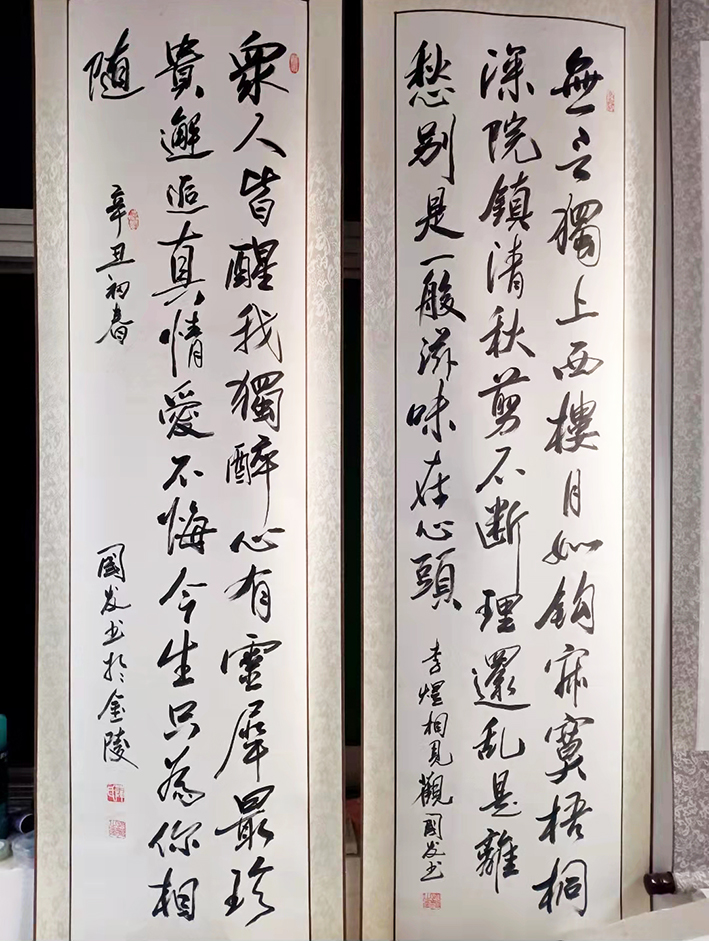 無言獨上西樓月如鈎寂寞梧桐
深院鎮清秋剪不断理還乱是離
愁别是一般滋味在心頭
李煜相見觀國发书
眾人皆醒我獨醉心有靈犀最珍
貴邂逅真情愛不悔今生只為你相
随
辛丑初春
國发书於金陵